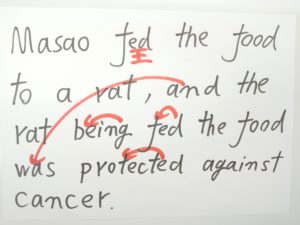 Masao fed the food
to a rat, and the
rat being fed the food
was protected against
cancer.